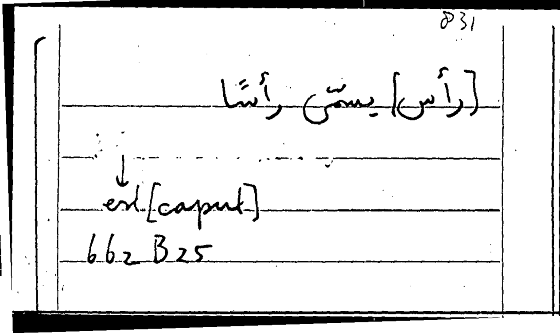 831
[رأس] يسمّى رأسًا
est [caput]
662 B 25